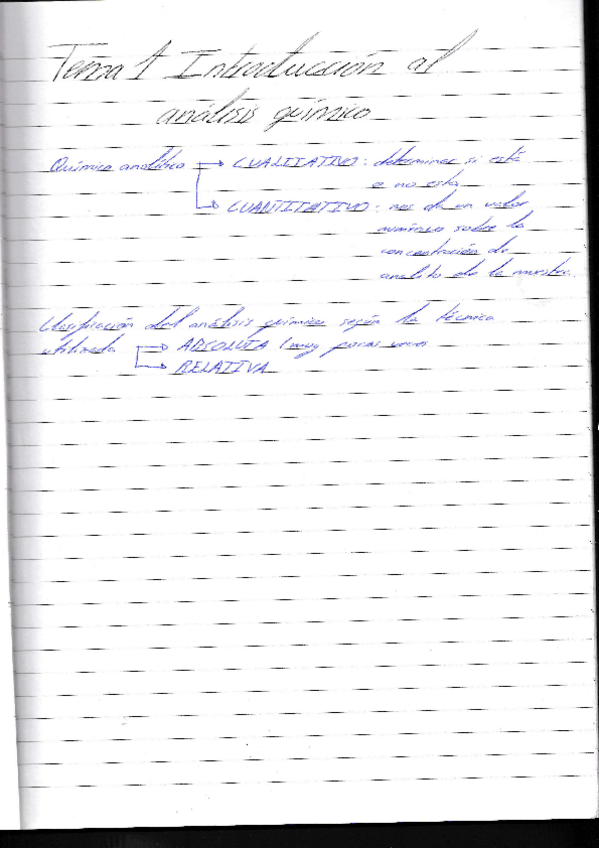 Tema 1 Introducción al
análisis químico
Química analítica → CUALITATIVO: determinar si está
o no esta
→ CUANTITATIVO: nos da un valor
numérico sobre la
concentración de
analito de la muestra.
Clasificación del análisis químico según la técnica
utilizada → ABSOLUTA (muy pocas veces
→ RELATIVA